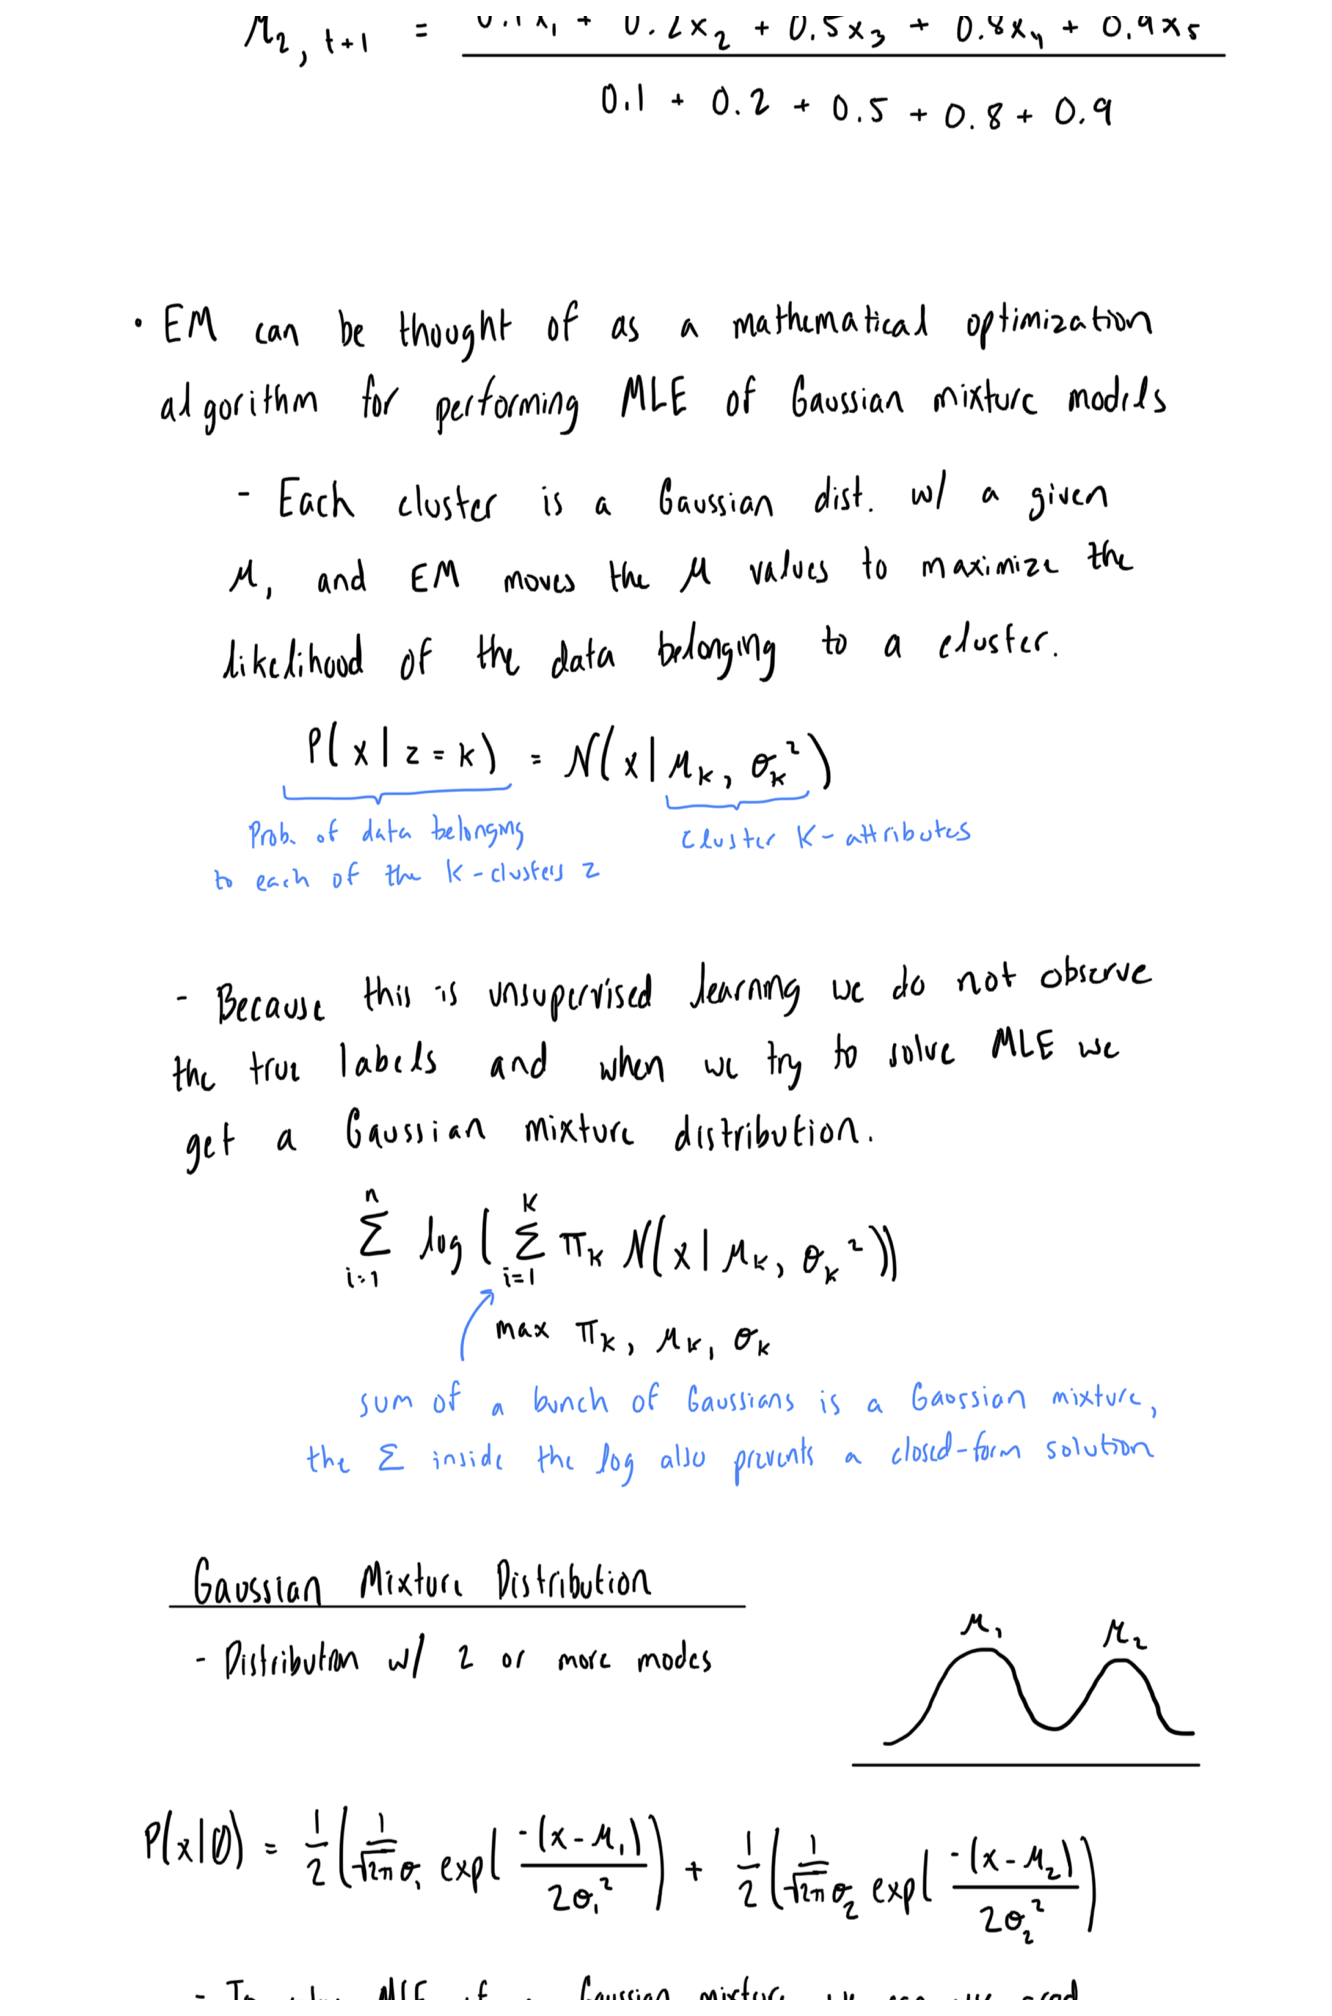 μ₂, t+1 = 0.1x₁ + 0.2x₂ + 0.5x₃ + 0.8x₄ + 0.9x₅
0.1 + 0.2 + 0.5 + 0.8 + 0.9
• EM can be thought of as a mathematical optimization
algorithm for performing MLE of Gaussian mixture models
- Each cluster is a Gaussian dist. w/ a given
μ, and EM moves the μ values to maximize the
likelihood of the data belonging to a cluster.
P(x | z = k) = N(x | μₖ, σₖ²)
Prob. of data belonging
to each of the k-clusters z
cluster K-attributes
- Because this is unsupervised learning we do not observe
the true labels and when we try to solve MLE we
get a Gaussian mixture distribution.
n K
Σ log ( Σ πₖ N(x | μₖ, σₖ²))
i=1 i=1
max πₖ, μₖ, σₖ
sum of a bunch of Gaussians is a Gaussian mixture,
the Σ inside the log also prevents a closed-form solution
Gaussian Mixture Distribution
- Distribution w/ 2 or more modes
μ₁ μ₂
P(x|θ) = 1/2 (1/√2π σ₁ exp( -(x-μ₁)/2σ₁² ) + 1/2 (1/√2π σ₂ exp( -(x-μ₂)/2σ₂² )